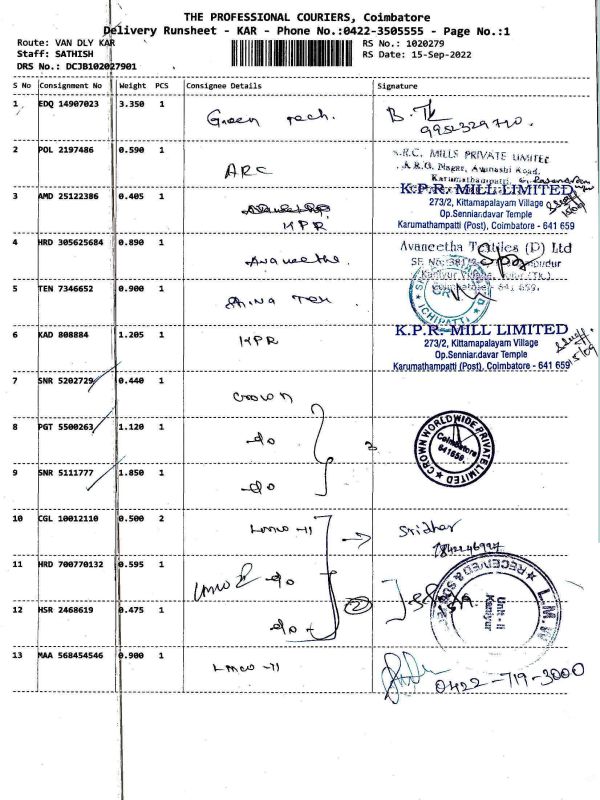 THE PROFESSIONAL COURIERS, Coimbatore
Delivery Runsheet - KAR - Phone No.:0422-3505555 - Page No.:1
Route: VAN DLY KAR
RS No.: 1020279
Staff: SATHISH
RS Date: 15-Sep-2022
DRS No.: DCJB102027901
S No Consignment No Weight PCS Consignee Details Signature
1 EDQ 14907023 3.350 1 Green Tech. B.
2 POL 2197486 0.590 1 ARC
MILLS PRIVATE LIMITED
Nagar, Avinashi Road,
Karumathampatti,
3 AMD 25122386 0.405 1 KPR
K.P.R. MILL LIMITED
273/2, Kittamapalayam Village
Op.Senniar.davar Temple
Karumathampatti (Post), Coimbatore - 641 659
4 HRD 305625684 0.890 1 Avaneetha.
Avaneetha Textiles (P) Ltd
5 TEN 7346652 0.900 1
6 KAD 808884 1.205 1 KPR
K.P.R. MILL LIMITED
273/2, Kittamapalayam Village
Op.Senniar.davar Temple
Karumathampatti (Post), Coimbatore - 641 659
15/09
7 SNR 5202729 0.440 1 Crown
8 PGT 5500263 1.120 1 -do 3
CROWN WORLDWIDE PRIVATE LIMITED
Coimbatore
641659.
9 SNR 5111777 1.850 1 -do
10 CGL 10012110 0.500 2 Lmw -11 Sridhar
11 HRD 700770132 0.595 1 do
12 HSR 2468619 0.475 1 do 2
RECEIVED &
L.M.W
Unit - ii
Kaniyur
13 MAA 568454546 0.900 1 Lmw -11
0422-719-3000